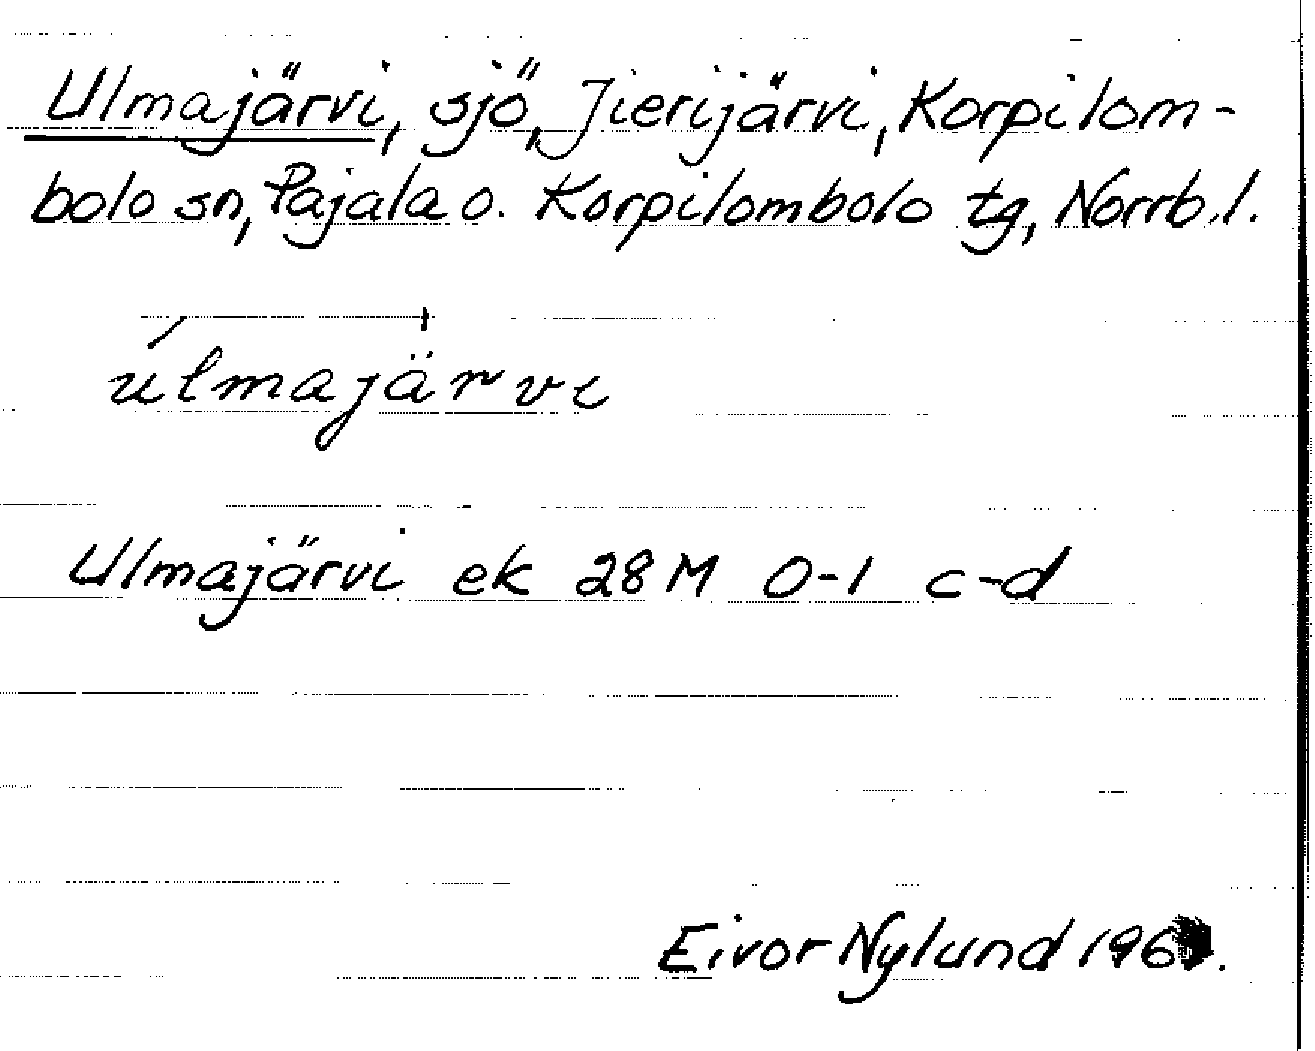 Ulmajärvi, sjö, Jierijärvi, Korpilom-
bolo sn, Pajala o. Korpilombolo tg, Norrb. l.
úlmajärvi
Ulmajärvi ek 28 M 0-1 c-d
Eivor Nylund